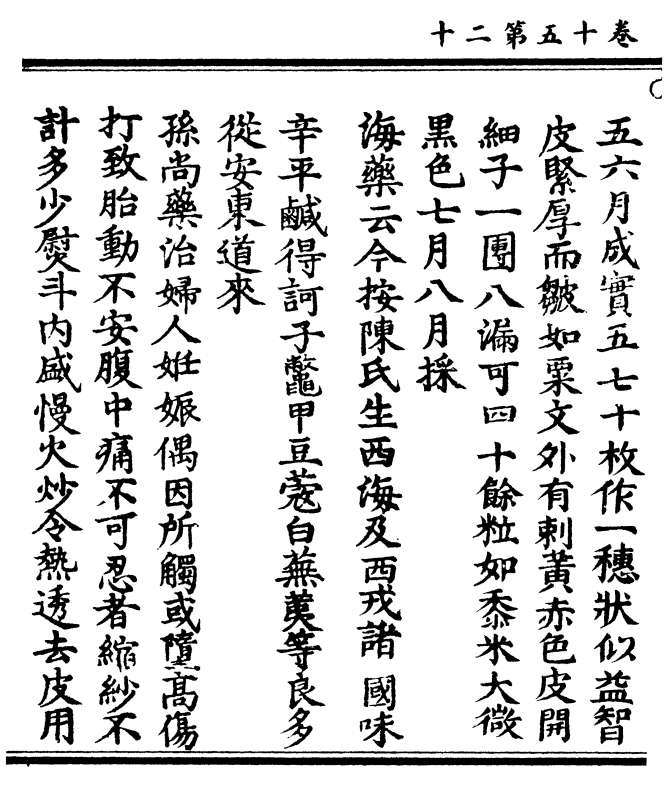 卷十五第二十
五六月成實五七十枚作一穗狀似益智
皮緊厚而皺如粟文外有刺黃赤色皮開
細子一團八漏可四十餘粒如黍米大微
黑色七月八月採
海藥云今按陳氏生西海及西戎諸國味
辛平鹹得訶子鼈甲豆蔻白蕪荑等良多
從安東道來
孫尚藥治婦人姙娠偶因所觸或墮高傷
打致胎動不安腹中痛不可忍者縮紗不
計多少熨斗內盛慢火炒令熱透去皮用